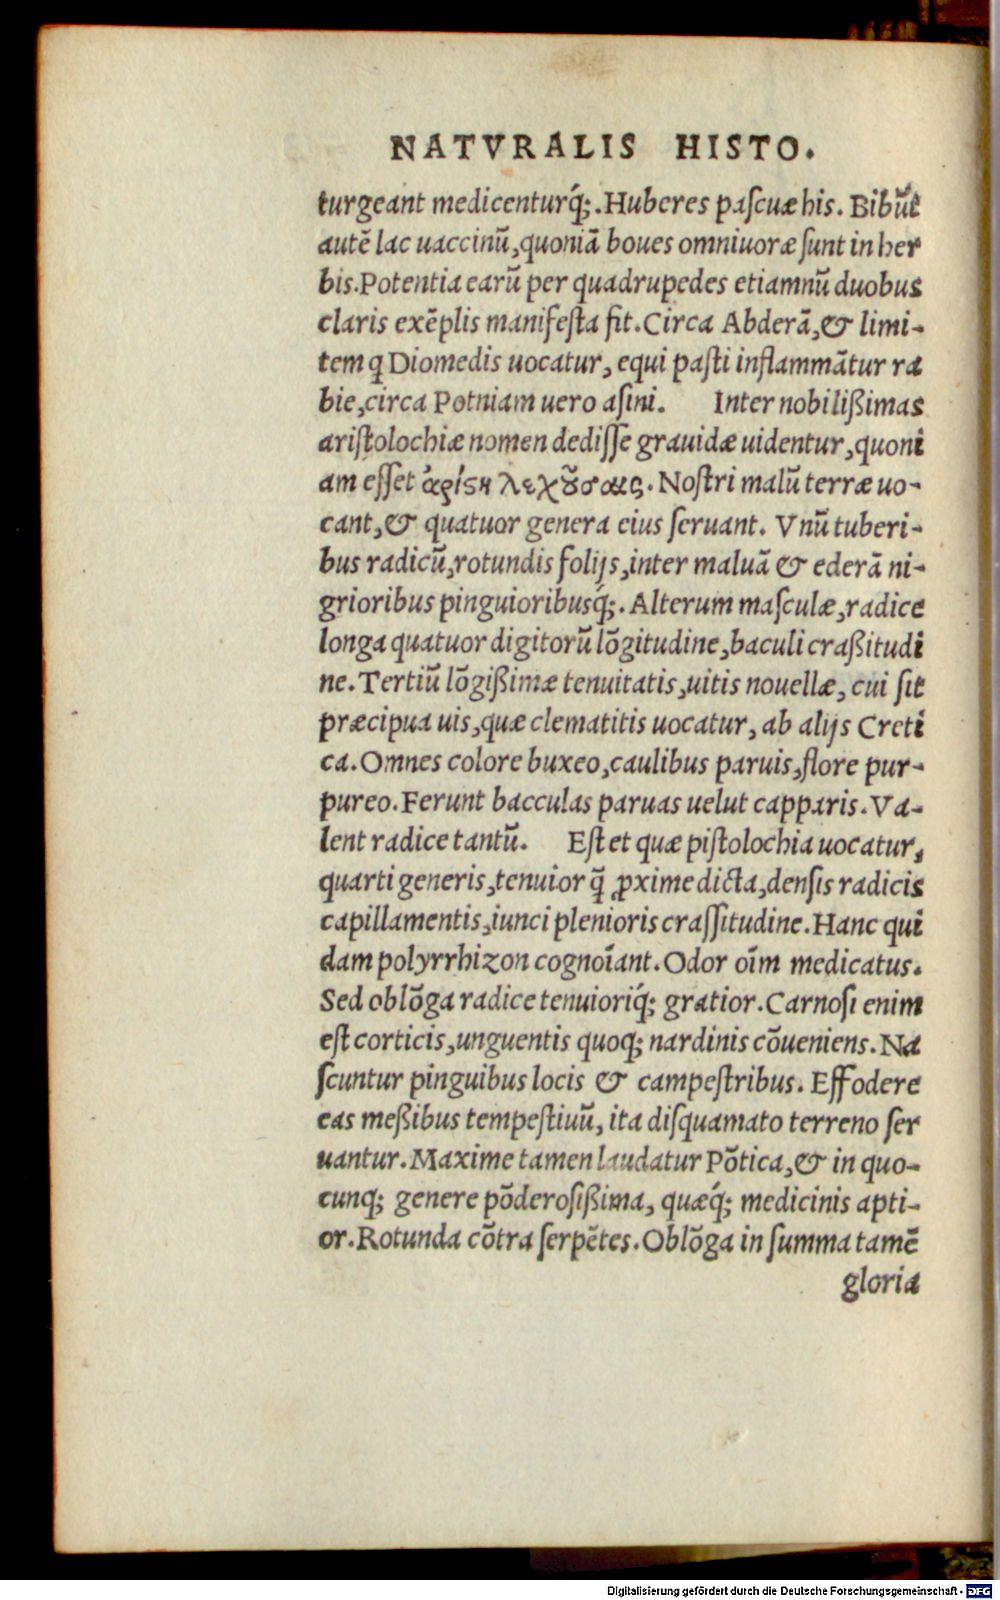 NATVRALIS HISTO.
turgeant medicenturq́;. Huberes pascuæ his. Bibũt
autē lac uaccinũ, quoniā boues omniuoræ sunt in her
bis. Potentia earũ per quadrupedes etiamnũ duobus
claris exēplis manifesta fit. Circa Abderā, & limi-
tem q Diomedis uocatur, equi pasti inflammātur ra
bie, circa Potniam uero asini. Inter nobilißimas
aristolochiæ nomen dedisse grauidæ uidentur, quoni
am esset ἀρίστη λεχούσαις. Nostri malũ terræ uo-
cant, & quatuor genera eius seruant. Vnũ tuberi-
bus radicũ, rotundis folijs, inter maluā & ederā ni-
grioribus pinguioribusq́;. Alterum masculæ, radice
longa quatuor digitorũ lōgitudine, baculi craßitudi
ne. Tertiũ lōgißimæ tenuitatis, uitis nouellæ, cui sit
præcipua uis, quæ clematitis uocatur, ab alijs Creti
ca. Omnes colore buxeo, caulibus paruis, flore pur-
pureo. Ferunt bacculas paruas uelut capparis. Va-
lent radice tantũ. Est et quæ pistolochia uocatur,
quarti generis, tenuior q̄ ꝓxime dicta, densis radicis
capillamentis, iunci plenioris crassitudine. Hanc qui
dam polyrrhizon cognoīant. Odor oīm medicatus.
Sed oblōga radice tenuioriq́; gratior. Carnosi enim
est corticis, unguentis quoq; nardinis cōueniens. Na
scuntur pinguibus locis & campestribus. Effodere
eas meßibus tempestiuũ, ita disquamato terreno ser
uantur. Maxime tamen laudatur Pōtica, & in quo-
cunq; genere pōderosißima, quæq́; medicinis apti-
or. Rotunda cōtra serpētes. Oblōga in summa tamē
gloria
Digitalisierung gefördert durch die Deutsche Forschungsgemeinschaft - DFG